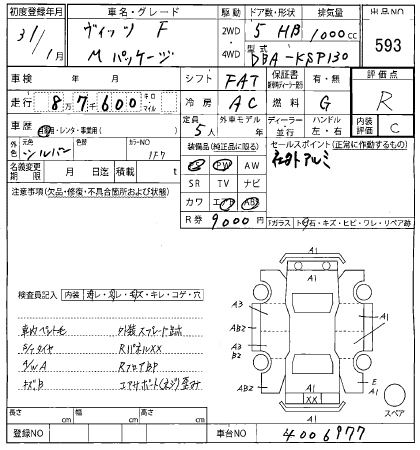 初度登録年月 車名・グレード 駆動 ドア数・形状 排気量 出品NO
31/1月 ヴィッツ F 2WD・4WD 5 HB 1000cc 593
Mパッケージ 型式 DBA-KSP130
車検 年 月 シフト FAT 保証書 有・無 評価点
走行 87600 キロ・マイル 冷房 AC 燃料 G R
車歴 自家・レンタ・事業用( ) 定員 5人 外車モデル 年 ディーラー・並行 ハンドル 左・右 内装評価 C
外色 元色 シルバー 色替 カラーNO 1F7 装備品(純正品に限る) セールスポイント(正常に作動するもの)
名義変更期限 月 日迄 積載 t PS PW AW 社外アルミ
注意事項(欠品・修復・不具合箇所および状態) SR TV ナビ
カワ エアB ABS
R券 9000円 Tガラス ト石・キズ・ヒビ・ワレ・リペア跡
検査員記入 内装 汚レ・スレ・キズ・キレ・コゲ・穴
車内ペット毛
S/Tタイヤ RパネルXX
A/W A RフロアBP
キズB
A1
A1
A3 A1
AB2 A1
A3
B2
AB2 A1 E
XX A1
A1 スペア
長さ cm 幅 cm 高さ cm
登録NO 車台NO 4006977